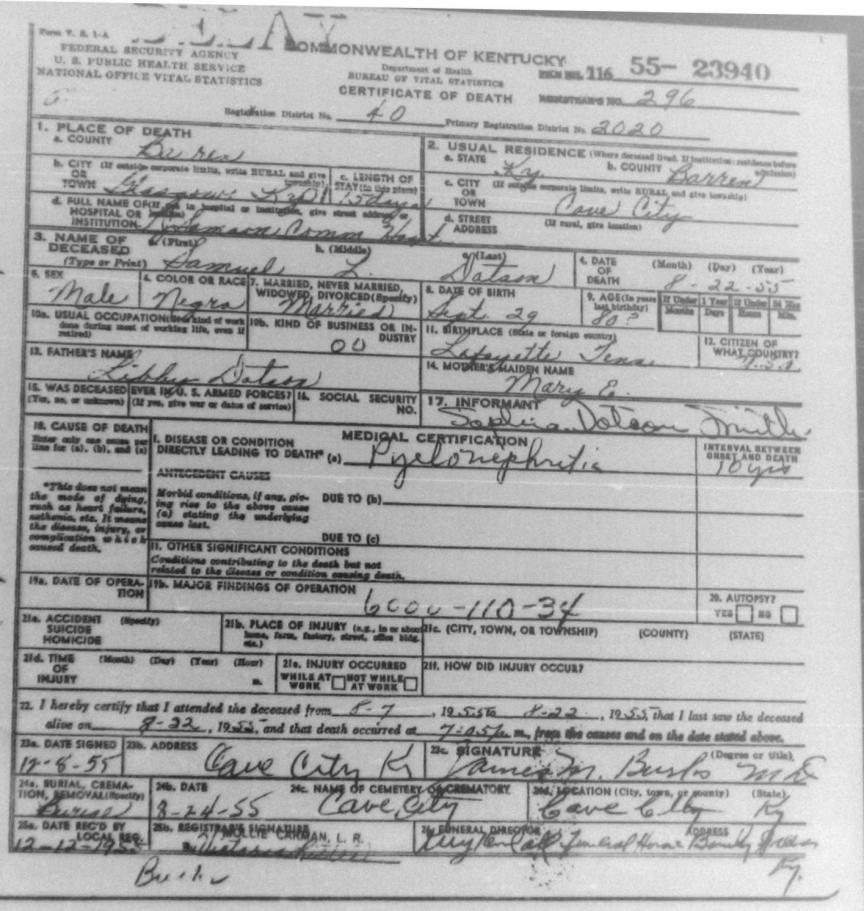 DELAY
Form V. S. 1-A
FEDERAL SECURITY AGENCY
U. S. PUBLIC HEALTH SERVICE
NATIONAL OFFICE VITAL STATISTICS
COMMONWEALTH OF KENTUCKY
Department of Health
BUREAU OF VITAL STATISTICS
CERTIFICATE OF DEATH
116 55- 23940
REGISTRAR'S NO. 296
Registration District No. 40 Primary Registration District No. 2020
1. PLACE OF DEATH
a. COUNTY
Barren
b. CITY (If outside corporate limits, write RURAL and give township)
OR
TOWN Glasgow Ky
c. LENGTH OF STAY (in this place)
15 days
d. FULL NAME OF (If not in hospital or institution, give street address or location)
HOSPITAL OR
INSTITUTION Samson Comm Hosp
2. USUAL RESIDENCE (Where deceased lived. If institution: residence before admission)
a. STATE Ky b. COUNTY Barren
c. CITY (If outside corporate limits, write RURAL and give township)
OR
TOWN Cave City
d. STREET (If rural, give location)
ADDRESS
3. NAME OF DECEASED
(Type or Print)
a. (First) b. (Middle) c. (Last)
Samuel L. Dotson
4. DATE OF DEATH (Month) (Day) (Year)
8-22-55
5. SEX
Male
6. COLOR OR RACE
Negro
7. MARRIED, NEVER MARRIED, WIDOWED, DIVORCED (Specify)
Married
8. DATE OF BIRTH
Sept 29
9. AGE (In years last birthday)
80?
If Under 1 Year If Under 24 Hrs
Months Days Hours Min.
10a. USUAL OCCUPATION (Give kind of work done during most of working life, even if retired)
10b. KIND OF BUSINESS OR INDUSTRY
00
11. BIRTHPLACE (State or foreign country)
Lafayette Tenn
12. CITIZEN OF WHAT COUNTRY?
13. FATHER'S NAME
Libby Dotson
14. MOTHER'S MAIDEN NAME
Mary E.
15. WAS DECEASED EVER IN U. S. ARMED FORCES?
(Yes, no, or unknown) (If yes, give war or dates of service)
16. SOCIAL SECURITY NO.
17. INFORMANT
Sophia Dotson Smith
18. CAUSE OF DEATH
Enter only one cause per line for (a), (b), and (c)
MEDICAL CERTIFICATION
I. DISEASE OR CONDITION
DIRECTLY LEADING TO DEATH* (a) Pyelonephritis
INTERVAL BETWEEN ONSET AND DEATH
10 yrs
*This does not mean the mode of dying, such as heart failure, asthenia, etc. It means the disease, injury, or complication which caused death.
ANTECEDENT CAUSES
Morbid conditions, if any, giving rise to the above cause (a) stating the underlying cause last.
DUE TO (b)
DUE TO (c)
II. OTHER SIGNIFICANT CONDITIONS
Conditions contributing to the death but not related to the disease or condition causing death.
19a. DATE OF OPERATION
19b. MAJOR FINDINGS OF OPERATION
6000-110-34
20. AUTOPSY?
YES NO
21a. ACCIDENT (Specify)
SUICIDE
HOMICIDE
21b. PLACE OF INJURY (e.g., in or about home, farm, factory, street, office bldg. etc.)
21c. (CITY, TOWN, OR TOWNSHIP) (COUNTY) (STATE)
21d. TIME (Month) (Day) (Year) (Hour)
OF
INJURY m.
21e. INJURY OCCURRED
WHILE AT WORK NOT WHILE AT WORK
21f. HOW DID INJURY OCCUR?
22. I hereby certify that I attended the deceased from 8-7, 1955 to 8-22, 1955, that I last saw the deceased
alive on 8-22, 1955, and that death occurred at 7:05 p. m., from the causes and on the date stated above.
23a. DATE SIGNED
12-8-55
23b. ADDRESS
Cave City Ky
23c. SIGNATURE (Degree or title)
James M. Bushs MD
24a. BURIAL, CREMATION, REMOVAL (Specify)
Burial
24b. DATE
8-24-55
24c. NAME OF CEMETERY OR CREMATORY
Cave City
24d. LOCATION (City, town, or county) (State)
Cave City Ky
25a. DATE REC'D BY LOCAL REG.
12-12-1955
25b. REGISTRAR'S SIGNATURE
MOLLIE CARMAN, L. R.
26. FUNERAL DIRECTOR ADDRESS
Funeral Home Bowling Green
Ky.